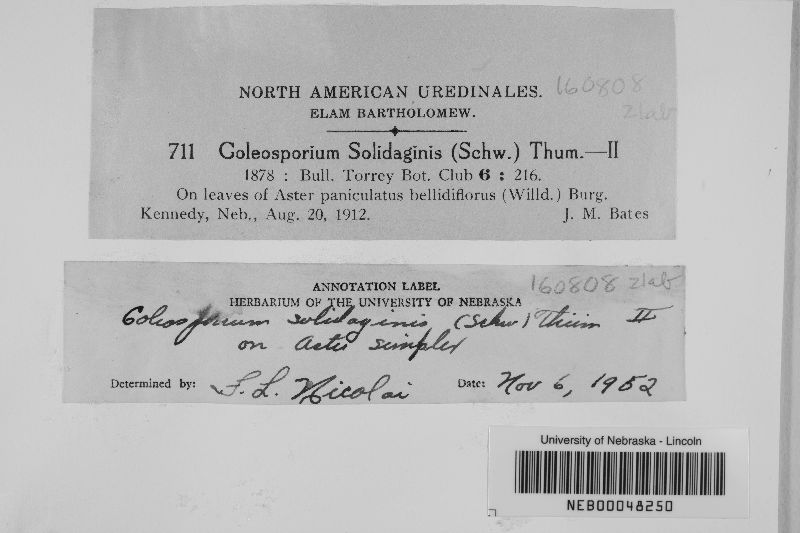 NORTH AMERICAN UREDINALES. 160808
ELAM BARTHOLOMEW. zlab
711 Coleosporium Solidaginis (Schw.) Thum.—II
1878 : Bull. Torrey Bot. Club 6 : 216.
On leaves of Aster paniculatus bellidiflorus (Willd.) Burg.
Kennedy, Neb., Aug. 20, 1912. J. M. Bates
ANNOTATION LABEL 160808 zlab
HERBARIUM OF THE UNIVERSITY OF NEBRASKA
Coleosporium solidaginis (Schw) Thüm II
on Aster simplex
Determined by: F. L. Nicolai Date: Nov 6, 1952
University of Nebraska - Lincoln
NEB00048250